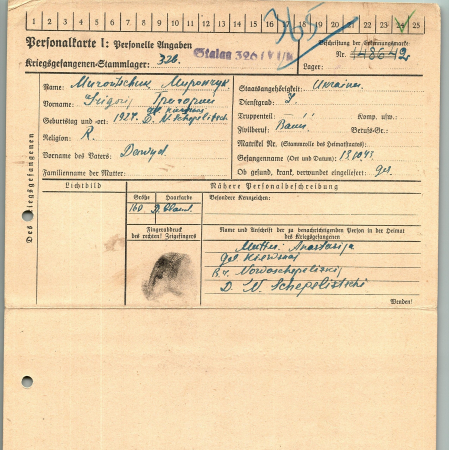 1 2 3 4 5 6 7 8 9 10 11 12 13 14 15 16 17 18 19 20 21 22 23 24 25
365
Personalkarte I: Personelle Angaben
Kriegsgefangenen-Stammlager: 326. Stalag 326 (VI/K)
Beschriftung der Erkennungsmarke
Nr.
Lager:
Des Kriegsgefangenen
Name: Mirontschuk Мирончук
Staatsangehörigkeit: Ukraine
Vorname: Grigorij Григорий
Dienstgrad: S.
Geburtstag und -ort: 1924. D. N. Schepelitsch
Truppenteil: Komp. usw.:
Religion: R.
Zivilberuf: Bauer Berufs-Gr.:
Matrikel Nr. (Stammrolle des Heimatstaates):
Vorname des Vaters: Dawyd
Gefangennahme (Ort und Datum):
Familienname der Mutter:
Ob gesund, krank, verwundet eingeliefert: ges.
Lichtbild
Nähere Personalbeschreibung
Größe Haarfarbe
Besondere Kennzeichen:
160 D. blond.
Fingerabdruck
des rechten! Zeigefingers
Name und Anschrift der zu benachrichtigenden Person in der Heimat
des Kriegsgefangenen
Mutter: Anastasija
R. Nowoschepelizkij
D. N. Schepelitschi
Wenden!